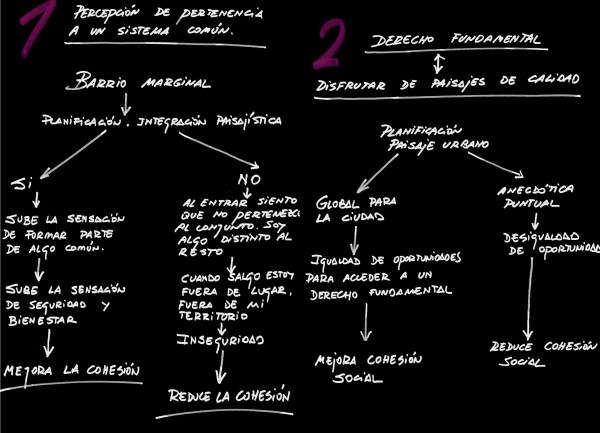 1
PERCEPCIÓN DE PERTENENCIA
A UN SISTEMA COMÚN.
BARRIO MARGINAL
PLANIFICACIÓN. INTEGRACIÓN PAISAJÍSTICA
SI
SUBE LA SENSACIÓN
DE FORMAR PARTE
DE ALGO COMÚN.
SUBE LA SENSACIÓN
DE SEGURIDAD Y
BIENESTAR
MEJORA LA COHESIÓN
NO
AL ENTRAR SIENTO
QUE NO PERTENEZCO
AL CONJUNTO. SOY
ALGO DISTINTO AL
RESTO
CUANDO SALGO ESTOY
FUERA DE LUGAR,
FUERA DE MI
TERRITORIO
INSEGURIDAD
REDUCE LA COHESIÓN
2
DERECHO FUNDAMENTAL
DISFRUTAR DE PAISAJES DE CALIDAD
PLANIFICACIÓN
PAISAJE URBANO
GLOBAL PARA
LA CIUDAD
IGUALDAD DE OPORTUNIDADES
PARA ACCEDER A UN
DERECHO FUNDAMENTAL
MEJORA COHESIÓN
SOCIAL
ANECDÓTICA
PUNTUAL
DESIGUALDAD
DE OPORTUNIDAD
REDUCE COHESIÓN
SOCIAL